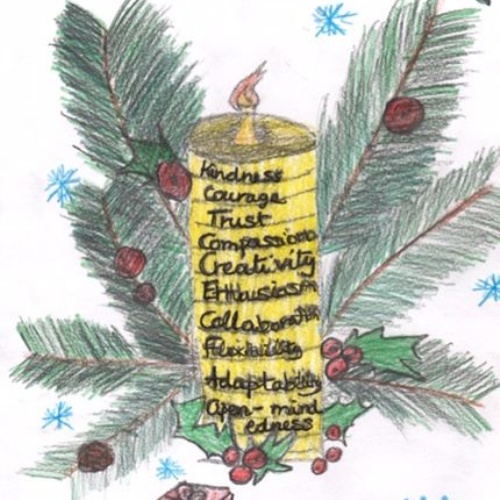 Kindness
Courage
Trust
Compassion
Creativity
Enthusiasm
Collaboration
Flexibility
Adaptability
Open-mind
edness